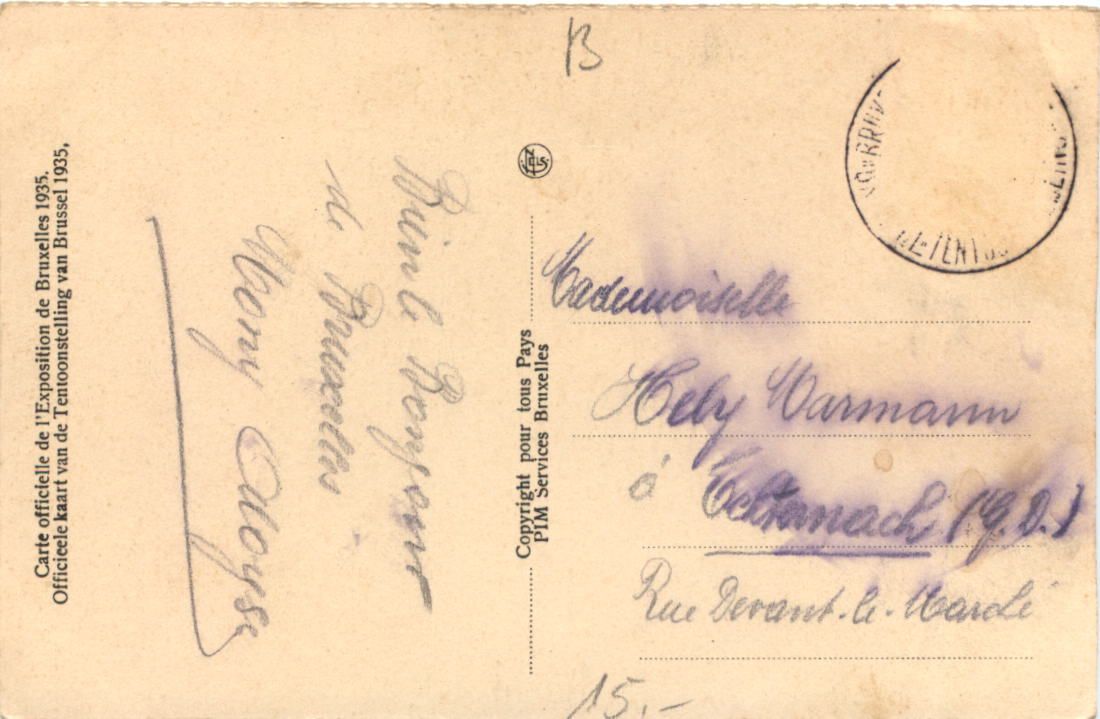 Carte officielle de l'Exposition de Bruxelles 1935.
Officieele kaart van de Tentoonstelling van Brussel 1935,
de Bruxelles
Mony Aloyse
Copyright pour tous Pays
PIM Services Bruxelles
B
Mademoiselle
Hely Warmann
à Echternach (G. D.)
Rue Devant-le-Marché
15.-